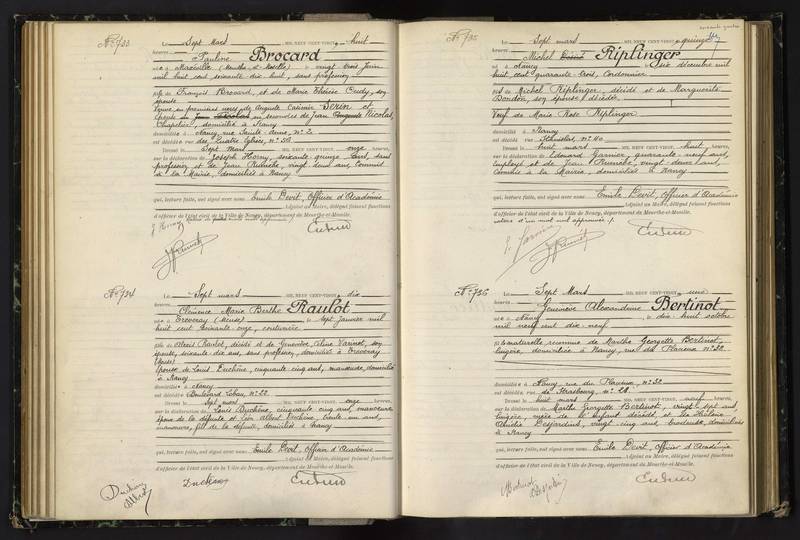 N° 733
Le Sept Mars MIL NEUF CENT-VINGT, huit
heures,
Pauline Brocard
née à Maxéville (Meurthe-et-Moselle) le vingt trois Juin
mil huit cent soixante dix huit, sans profession
fille de François Brocard, et de Marie Thérèse Oudy, son
épouse
Veuve en premières noces de Auguste Casimir Serin et
épouse en secondes de Jean Nicolas,
Chapelier, domicilié à Nancy
domiciliée à Nancy, rue Sainte Anne, n° 2
est décédée rue des Quatre Eglises, n° 58
Dressé le Sept Mars onze heures,
sur la déclaration de Joseph Horny, soixante-quinze ans, sans
profession et de Jean vingt deux ans, Commis
à la Mairie, domiciliés à Nancy
qui, lecture faite, ont signé avec nous Emile Devit, Officier d'Académie
Adjoint au Maire, délégué faisant fonctions
d'officier de l'état civil de la Ville de Nancy, département de Meurthe-et-Moselle.
N° 734
Le Sept mars MIL NEUF CENT-VINGT, dix
heures,
Clémence Marie Berthe Raulot
née à Tréveray (Meuse) le sept Janvier mil
huit cent soixante onze, couturière
fille de Alexis Raulot, décédé et de Geneviève, Varinot, son
épouse, soixante dix ans, sans profession, domiciliée à Tréveray
(Meuse)
Épouse de Louis Duchêne, cinquante cinq ans, manœuvre, domicilié
à Nancy
domiciliée à Nancy
est décédée Boulevard Lobau, n° 22
Dressé le Sept mars onze heures,
sur la déclaration de Louis Duchêne, cinquante cinq ans, manœuvre
époux de la défunte et Léon Albert Duchêne, trente un ans,
manœuvre, fils de la défunte, domiciliés à Nancy
qui, lecture faite, ont signé avec nous Emile Devit, Officier d'Académie
Adjoint au Maire, délégué faisant fonctions
d'officier de l'état civil de la Ville de Nancy, département de Meurthe-et-Moselle.
Duchêne
Albert
Duchêne
N° 735
Le Sept mars MIL NEUF CENT-VINGT, quinze
heures,
Michel Riplinger
né à Nancy le six décembre mil
huit cent quarante-trois, Cordonnier
fils de Michel Riplinger, décédé et de Marguerite
Dondon, son épouse, décédée
Veuf de Marie Rose Riplinger
domicilié à Nancy
est décédé rue Stanislas, n° 40
Dressé le huit mars, huit heures,
sur la déclaration de Edouard Garnier, quarante-neuf ans,
employé et de Jean vingt-deux ans,
Commis à la Mairie, domiciliés à Nancy
qui, lecture faite, ont signé avec nous Emile Devit, Officier d'Académie
Adjoint au Maire, délégué faisant fonctions
d'officier de l'état civil de la Ville de Nancy, département de Meurthe-et-Moselle.
N° 736
Le Sept Mars MIL NEUF CENT-VINGT, une
heures,
Geneviève Alexandrine Bertinot
née à Nancy, le dix-huit octobre
mil neuf cent dix-neuf
fille naturelle reconnue de Marthe Georgette Bertinot,
lingère, domiciliée à Nancy, rue du Placieux n° 22
domiciliée à Nancy, rue du Placieux, n° 22
est décédée rue de Strasbourg, n° 28
Dressé le huit mars, neuf heures,
sur la déclaration de Marthe Georgette Bertinot, vingt sept ans,
lingère, mère de l'enfant décédé et de Hélène
Amélie Desjardins, vingt cinq ans, brodeuse, domiciliées
à Nancy
qui, lecture faite, ont signé avec nous Emile Devit, Officier d'Académie
Adjoint au Maire, délégué faisant fonctions
d'officier de l'état civil de la Ville de Nancy, département de Meurthe-et-Moselle.